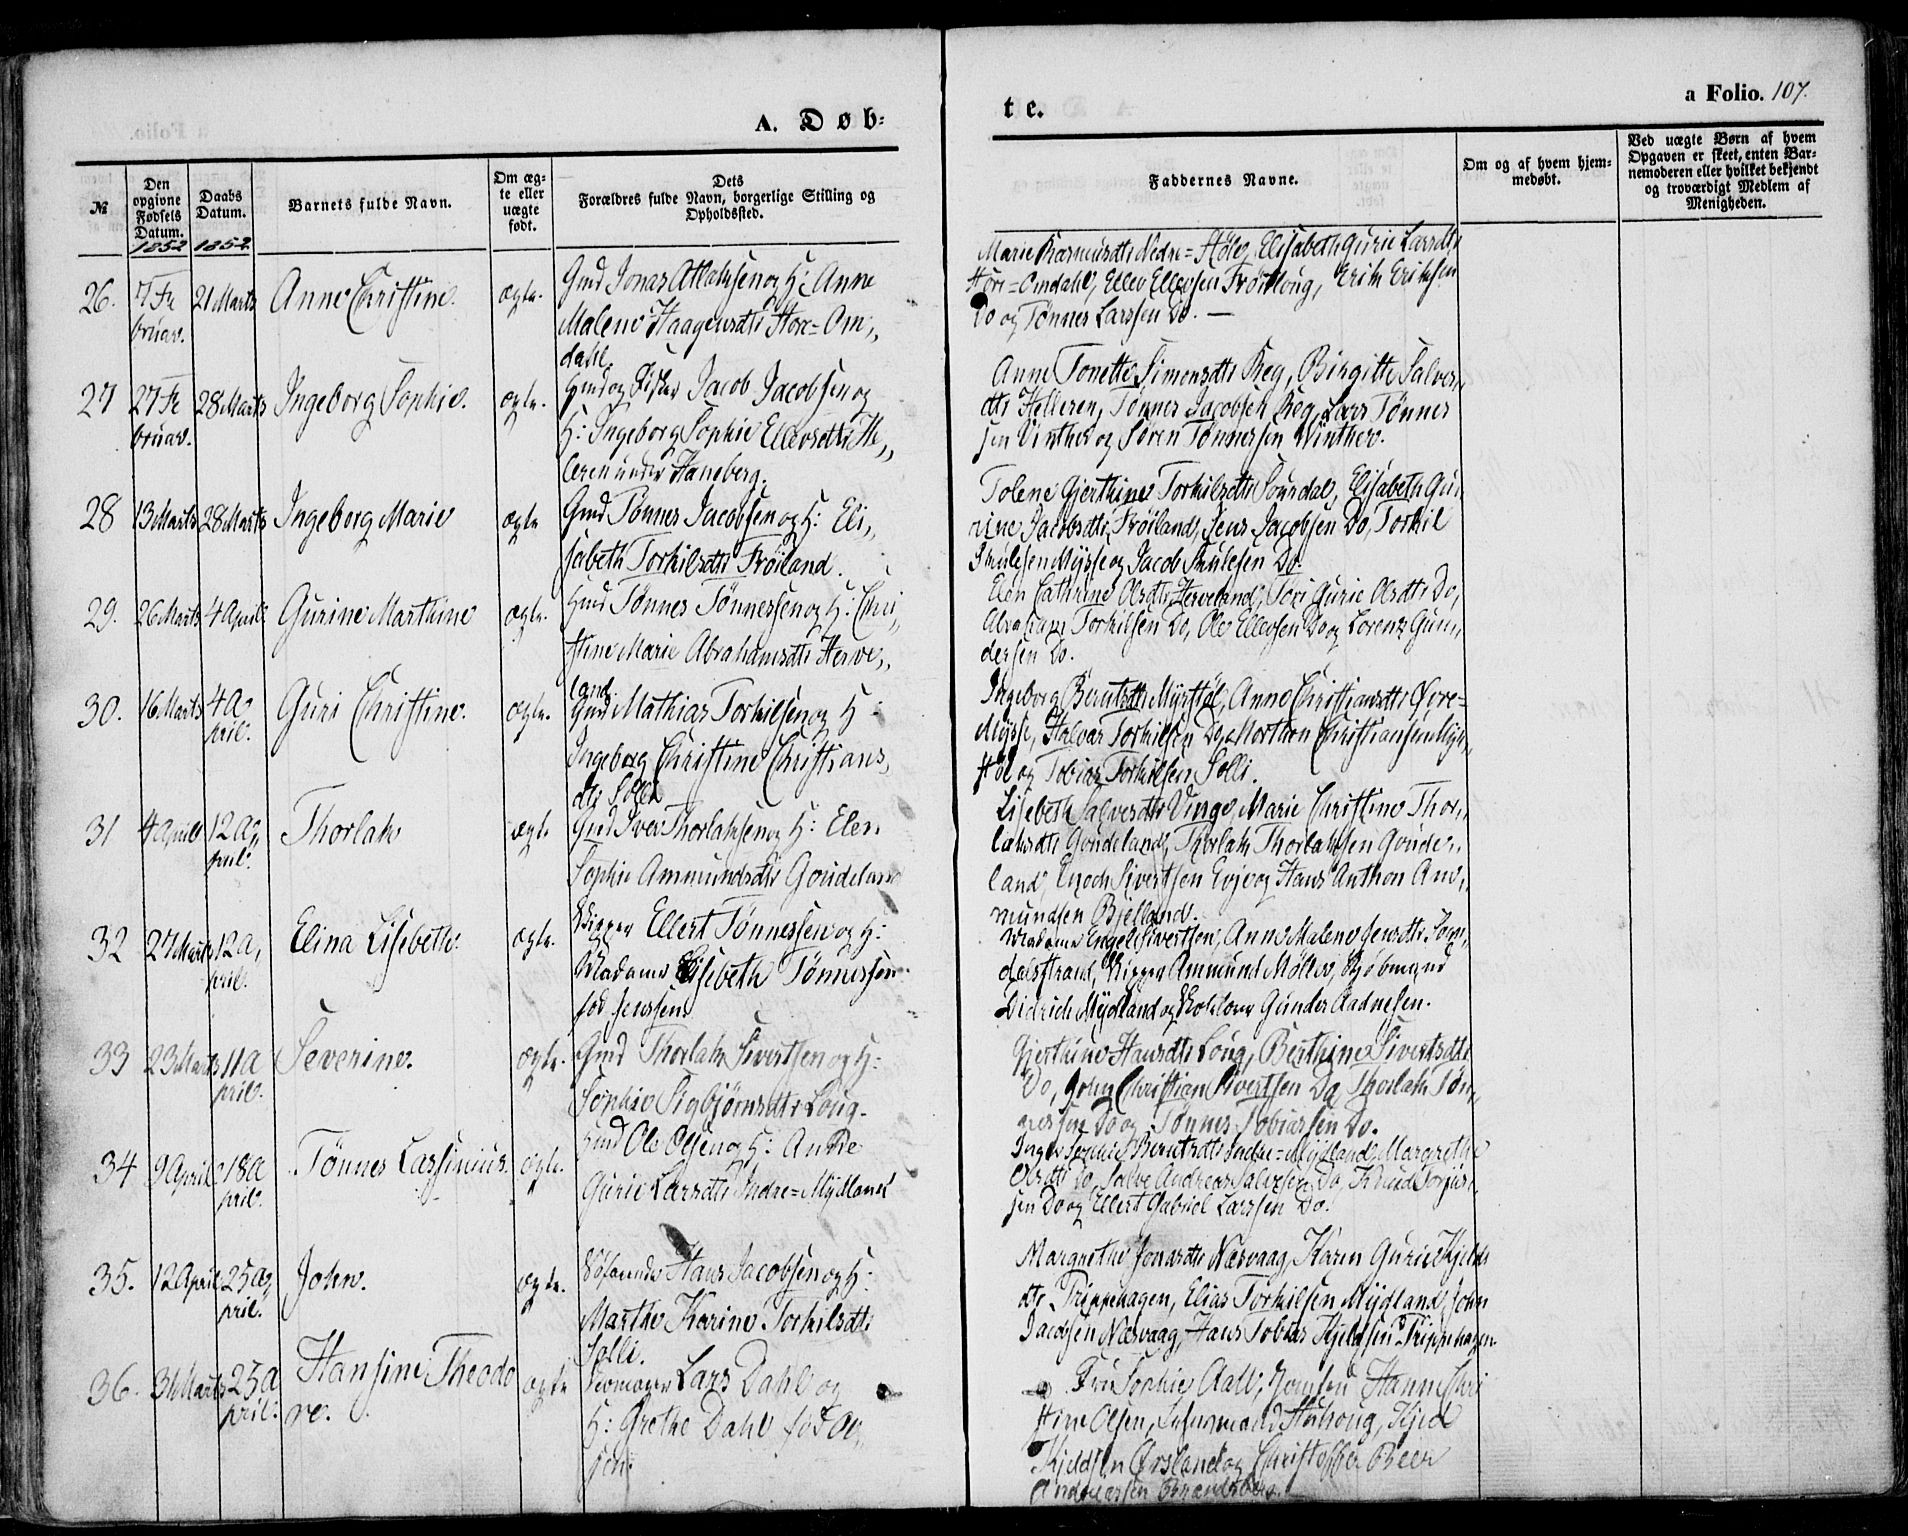 a Folio. 107.
A. Døb=
te.
№
Den opgivne Fødsels Datum.
1852
Daabs Datum.
1852.
Barnets fulde Navn.
Om ægte eller uægte født.
Dets
Forældres fulde Navn, borgerlige Stilling og
Opholdssted.
Faddernes Navne.
Om og af hvem hjem=
medøbt.
Ved uægte Børn af hvem
Opgaven er skeet, enten Bar=
nemoderen eller hvilket bekjendt
og troværdigt Medlem af
Menigheden.
26. 7 Fe 21 Marts Anne Christine. ægte. Gmd Jonas Atlaksen og H: Anne
bruar. Malene Haagensdtr Hore=Om,,
dahl
Marie Rasmusdtr Nedre=Høle, Elisabeth Gurie Larsdtr
Hore=Omdahl, Ellev Ellevsen Frøitlong, Erik Eriksen
Do og Tønnes Larssen Do. —
27 27 Fe 28 Marts Ingeborg Sophie. ægte. Hmd og Fisker Jacob Jacobsen og
bruar. H: Ingeborg Sophie Ellevsdtr He,,
leren under Haneberg.
Anne Tonette Simonsdtr Reg, Birgitte Salves,,
dtr Helleren, Tønnes Jacobsen Reg, Lars Tønnes
sen Vinther og Søren Tønnessen Winther.
28 13 Marts 28 Marts Ingeborg Marie ægte Gmd Tønnes Jacobsen og H: Eli,,
sabeth Torkilsdtr Frøiland.
Tolene Gjerthine Torkilsdtr Sourdal, Elisabeth Gu,,
rine Jacobsdtr Frøiland, Jens Jacobsen Do, Torkil
Skulesen Mysse og Jacob Skulesen Do
29. 26 Marts 4 April Gurine Marthine ægte. Hmd Tønnes Tønnessen og H: Chri,,
stine Marie Abrahamsdtr Herve,,
land.
Elen Cathrine Olsdtr Herveland, Tori Gurie Olsdtr Do,
Abraham Torkilsen Do, Ole Ellevsen Do og Lorenz Gun,,
dersen Do.
30. 16 Marts 4 A Guri Christine. ægte. Gmd Mathias Torkilsen og H:
pril. Ingeborg Christine Christians,,
dtr Solli
Ingeborg Berntsdtr Myrstøl, Anne Christiansdtr Øvre=
Mysse, Halvar Torkilsen Do, Morthen Christiansen Myr,,
støl og Tobias Torkilsen Solli.
31 4 April 12 Ap, Thorlak ægte Gmd Iver Thorlaksen og H: Elen
pril. Sophie Ammundsdtr Goudeland
Lisebeth Salvesdtr Vinge, Marie Christine Thor,,
laksdtr Goudeland, Thorlak Thorlaksen Goude,,
land, Enoch Sivertsen Evje og Hans Anthon Am,,
mundsen Bjelland.
32 27 Marts 12 A, Elina Lisebeth. ægte. Skipper Ellert Tønnessen og H:
pril. Madame Lisebeth Tønnessen
fød Jenssen
Madame Engel Sivertsen, Anne Malene Jensdtr Sogn,,
dalsstrand, Skipper Ammund Møller, Kjøbmand
Didrich Mydland og Skolelærer Gunder Aadnesen.
33 23 Marts 11 A Severine. ægte. Gmd Thorlak Sivertsen og H:
pril. Sophie Sigbjørnsdtr Loug.
Gjerthine Hansdtr Loug, Berthine Sivertsdtr
Do, John Christian Sivertsen Do, Thorlak Tøn,,
nessen Do og Tønnes Tobiassen Do.
34 9 April 18 A Tønnes Lassinius. ægte. Hmd Ole Olsen og H: Anne
pril. Gurie Larsdtr Indre=Mydland
Inger Sophie Berntsdtr Indre=Mydland, Margrethe
Olsdtr Do, Salve Andreas Salvesen Do, Knud Torjus,,
sen Do og Ellert Gabriel Larssen Do.
35. 12 April 25 Ap, John. ægte. Søfarende Hans Jacobsen og H:
pril. Marthe Karine Torkilsdtr
Solli.
Margrethe Jonasdtr Næsvaag, Karen Gurie Kjelds
dtr Trippehagen, Elias Torkilsen Mydland, John
Jacobsen Næsvaag, Hans Tobias Kjeldsen Trippehagen
36. 31 Marts 25 A Hansine Theodo ægte Lars Dahl og
pril. re. H: Grethe Dahl fød Ol,,
sen.
Fru Sophie Aall, Jomfru Hanne Chri
stine Olsen, Kjeld
Kjeldsen Ørsland og Christoffer Beer
Andreassen